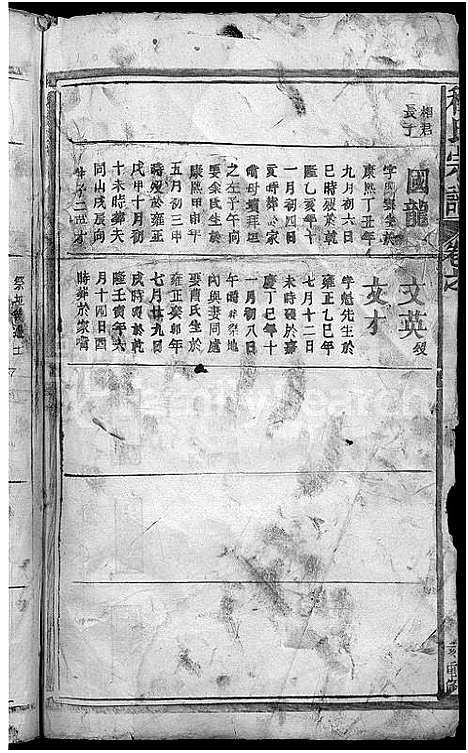 氏宗譜 卷之
相君
長子
國龍
康熙丁丑年
九月初六日
巳時歿於乾
隆乙亥年十
一月初四日
亥時葬於家
之左子午向
娶余氏生於
康熙甲申年
五月初三申
時歿於雍正
戌甲十月初
十未時葬夫
同山戌辰向
生子二
文英
歿
文才
字魁先生於
雍正乙巳年
七月十二日
未時歿於嘉
慶丁巳年十
一月初八日
午時葬祭地
內與妻同處
娶蕭氏生於
雍正癸卯年
七月廿九日
戌時歿於乾
隆壬寅年六
月十四日酉
時葬於家
FamilySearch